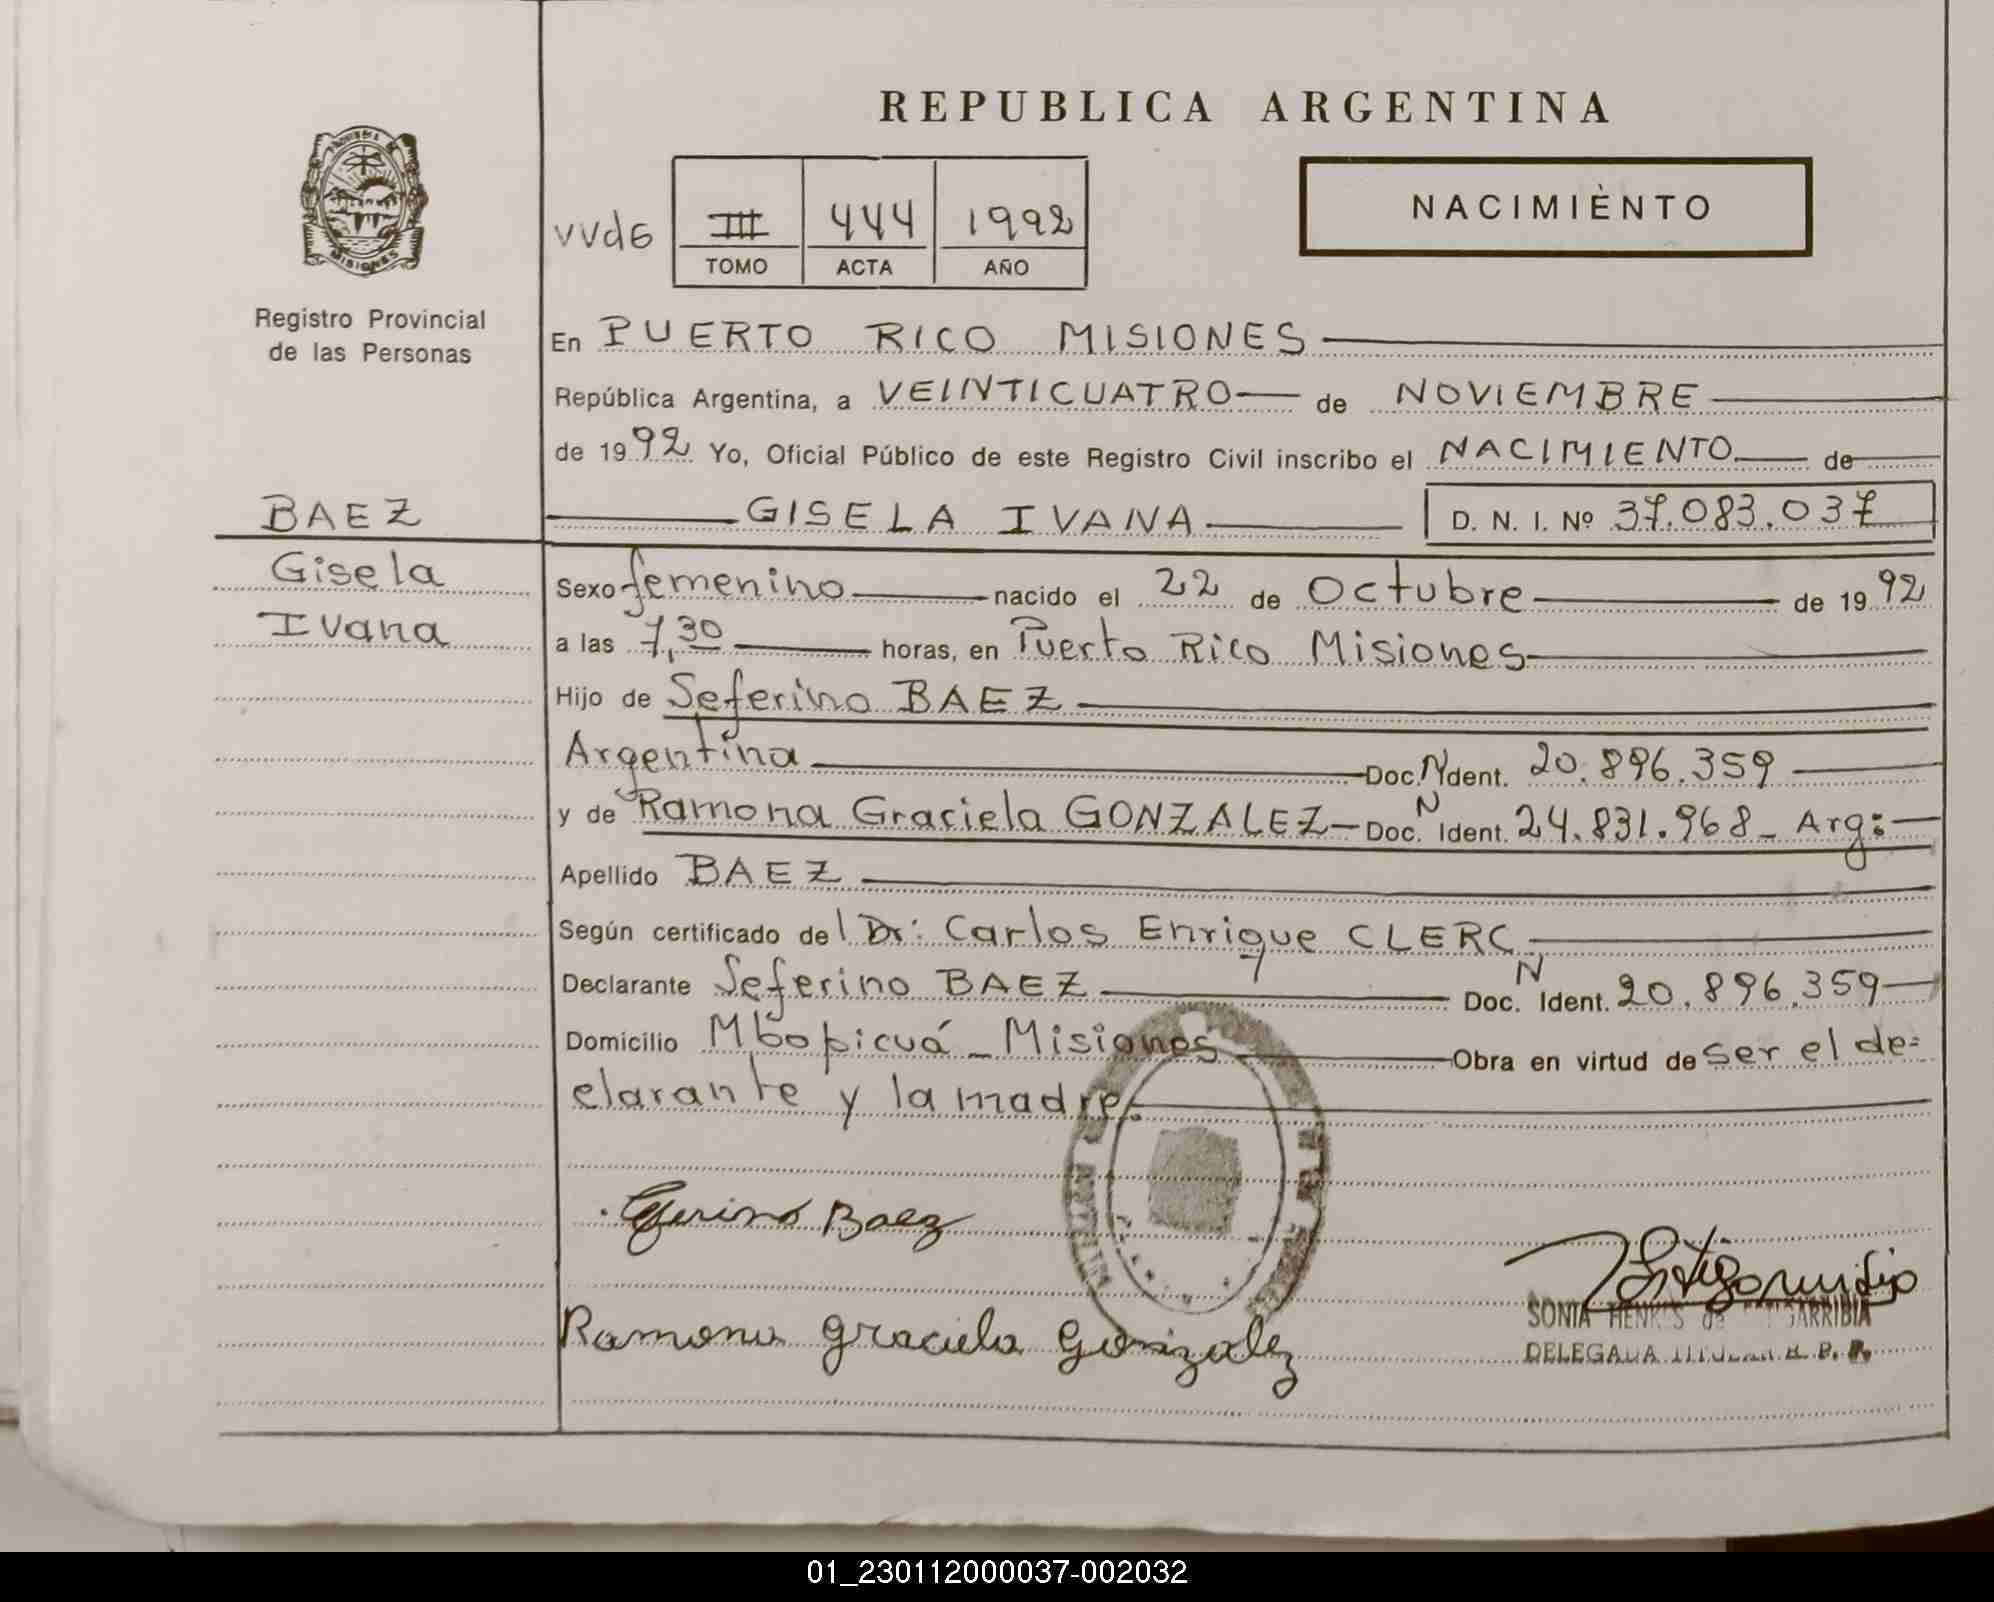 REPUBLICA ARGENTINA
NACIMIÈNTO
VVdG
III 444 1992
TOMO ACTA AÑO
MISIONES
Registro Provincial
de las Personas
En PUERTO RICO MISIONES
República Argentina, a VEINTICUATRO de NOVIEMBRE
de 1992 Yo, Oficial Público de este Registro Civil inscribo el NACIMIENTO de
GISELA IVANA D. N. I. Nº 37.083.037
BAEZ
Gisela
Ivana
Sexo femenino nacido el 22 de Octubre de 1992
a las 7,30 horas, en Puerto Rico Misiones
Hijo de Seferino BAEZ
Argentina Doc. N Ident. 20.896.359
y de Ramona Graciela GONZALEZ- Doc. N Ident. 24.831.968_ Arg:
Apellido BAEZ
Según certificado del Dr: Carlos Enrique CLERC
Declarante Seferino BAEZ Doc. N Ident. 20.896.359
Domicilio Mbopicuá _ Misiones Obra en virtud de ser el de=
clarante y la madre.
Seferino Baez
Ramona Graciela Gonzalez
SONIA HENK S de
DELEGADA TITULAR R. P. P.
01_230112000037-002032